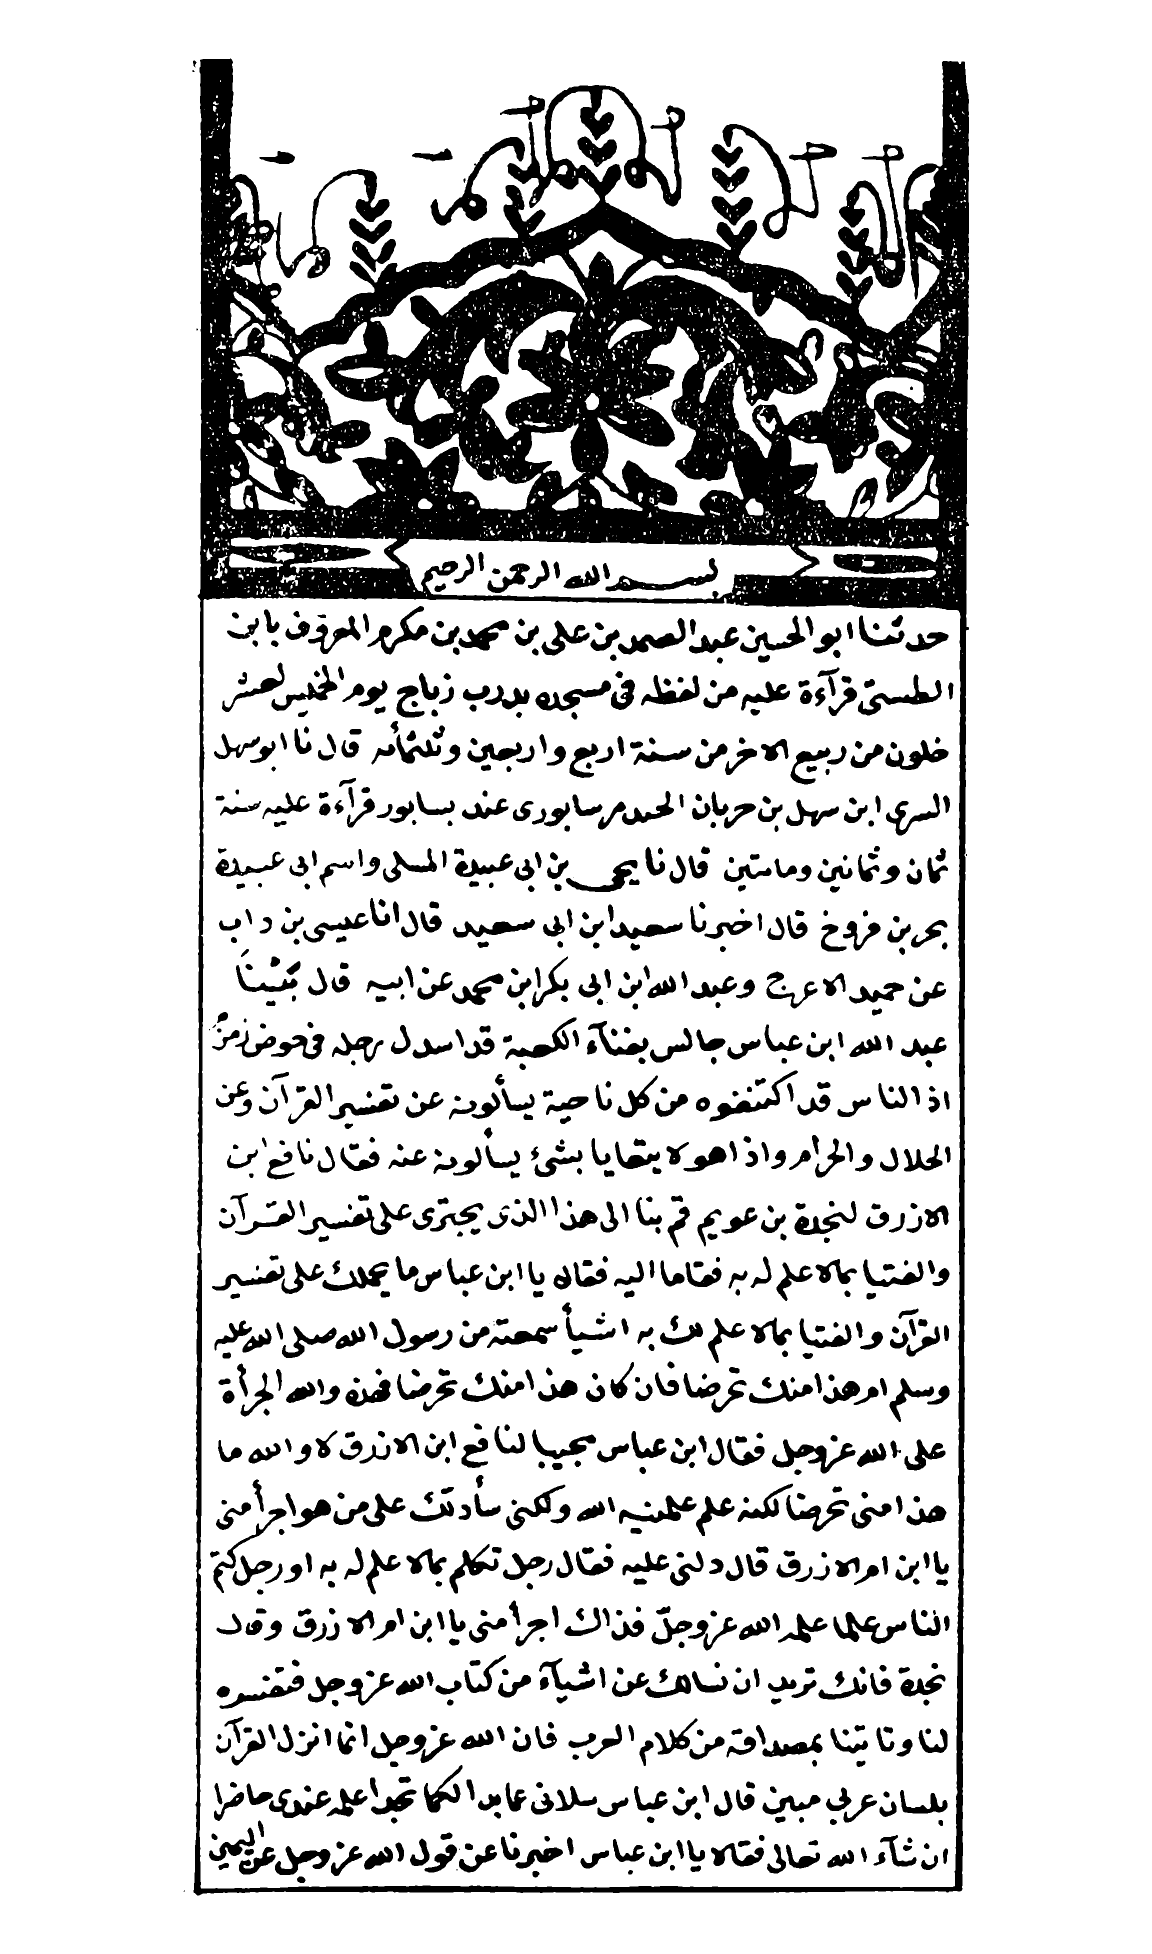 بسم الله الرحمن الرحيم
حدثنا ابو الحسين عبد الصمد بن على بن محمد بن مكرم المعروف بابن
الطستى قرآءة عليه من لفظه فى مسجده بدرب زباج يوم الخميس لعشر
خلون من ربيع الاخر من سنة اربع واربعين وثلثمأئه قال نا ابو سهل
السرى ابن سهل بن حربان الجنديسابورى عند بسابور قرآءة عليه سنة
ثمان وثمانين ومائتين قال نا يحيى بن ابى عبيدة المسلى واسم ابى عبيدة
بحر بن فروخ قال اخبرنا سعيد ابن ابى سعيد قال انا عيسى بن داب
عن حميد الاعرج وعبد الله ابن ابى بكر ابن محمد عن ابيه قال بَيْنَا
عبد الله ابن عباس جالس بفنآء الكعبة قد اسدل رجله فى حوض زمزم
اذ الناس قد اكتنفوه من كل ناحية يسألونه عن تفسير القرآن وعن
الحلال والحرام واذا هو لا يتعايا بشئ يسألونه عنه فقال نافع ابن
الازرق لنجدة بن عويم قم بنا الى هذا الذى يجترى على تفسير القرآن
والفتيا بمالا علم له به فقاما اليه فقالا يا ابن عباس ما يحملك على تفسير
القرآن والفتيا بمالا علم لك به اشيأ سمعته من رسول الله صلى الله عليه
وسلم ام هذا منك تخرضا فان كان هذا منك تخرضا فهذه والله الجرأة
على الله عز وجل فقال ابن عباس مجيبا لنافع ابن الازرق لا والله ما
هذا منى تخرضا لكنه علم علمنيه الله ولكنى سأدلك على من هو اجرأ منى
يا ابن ام الازرق قال دلنى عليه فقال رجل تكلم بمالا علم له به او رجل كتم
الناس علما علمه الله عز وجلّ فذاك اجرأ منى يا ابن ام الازرق وقال
نجدة فانك تريد ان نسالك عن اشيآء من كتاب الله عز وجل فتفسره
لنا وتاتينا بمصداقه من كلام العرب فان الله عز وجل انما انزل القرآن
بلسان عربي مبين قال ابن عباس سلانى عما بدا لكما تجدا علمه عندى حاضرا
ان شآء الله تعالى فقالا يا ابن عباس اخبرنا عن قول الله عز وجل عن اليمين